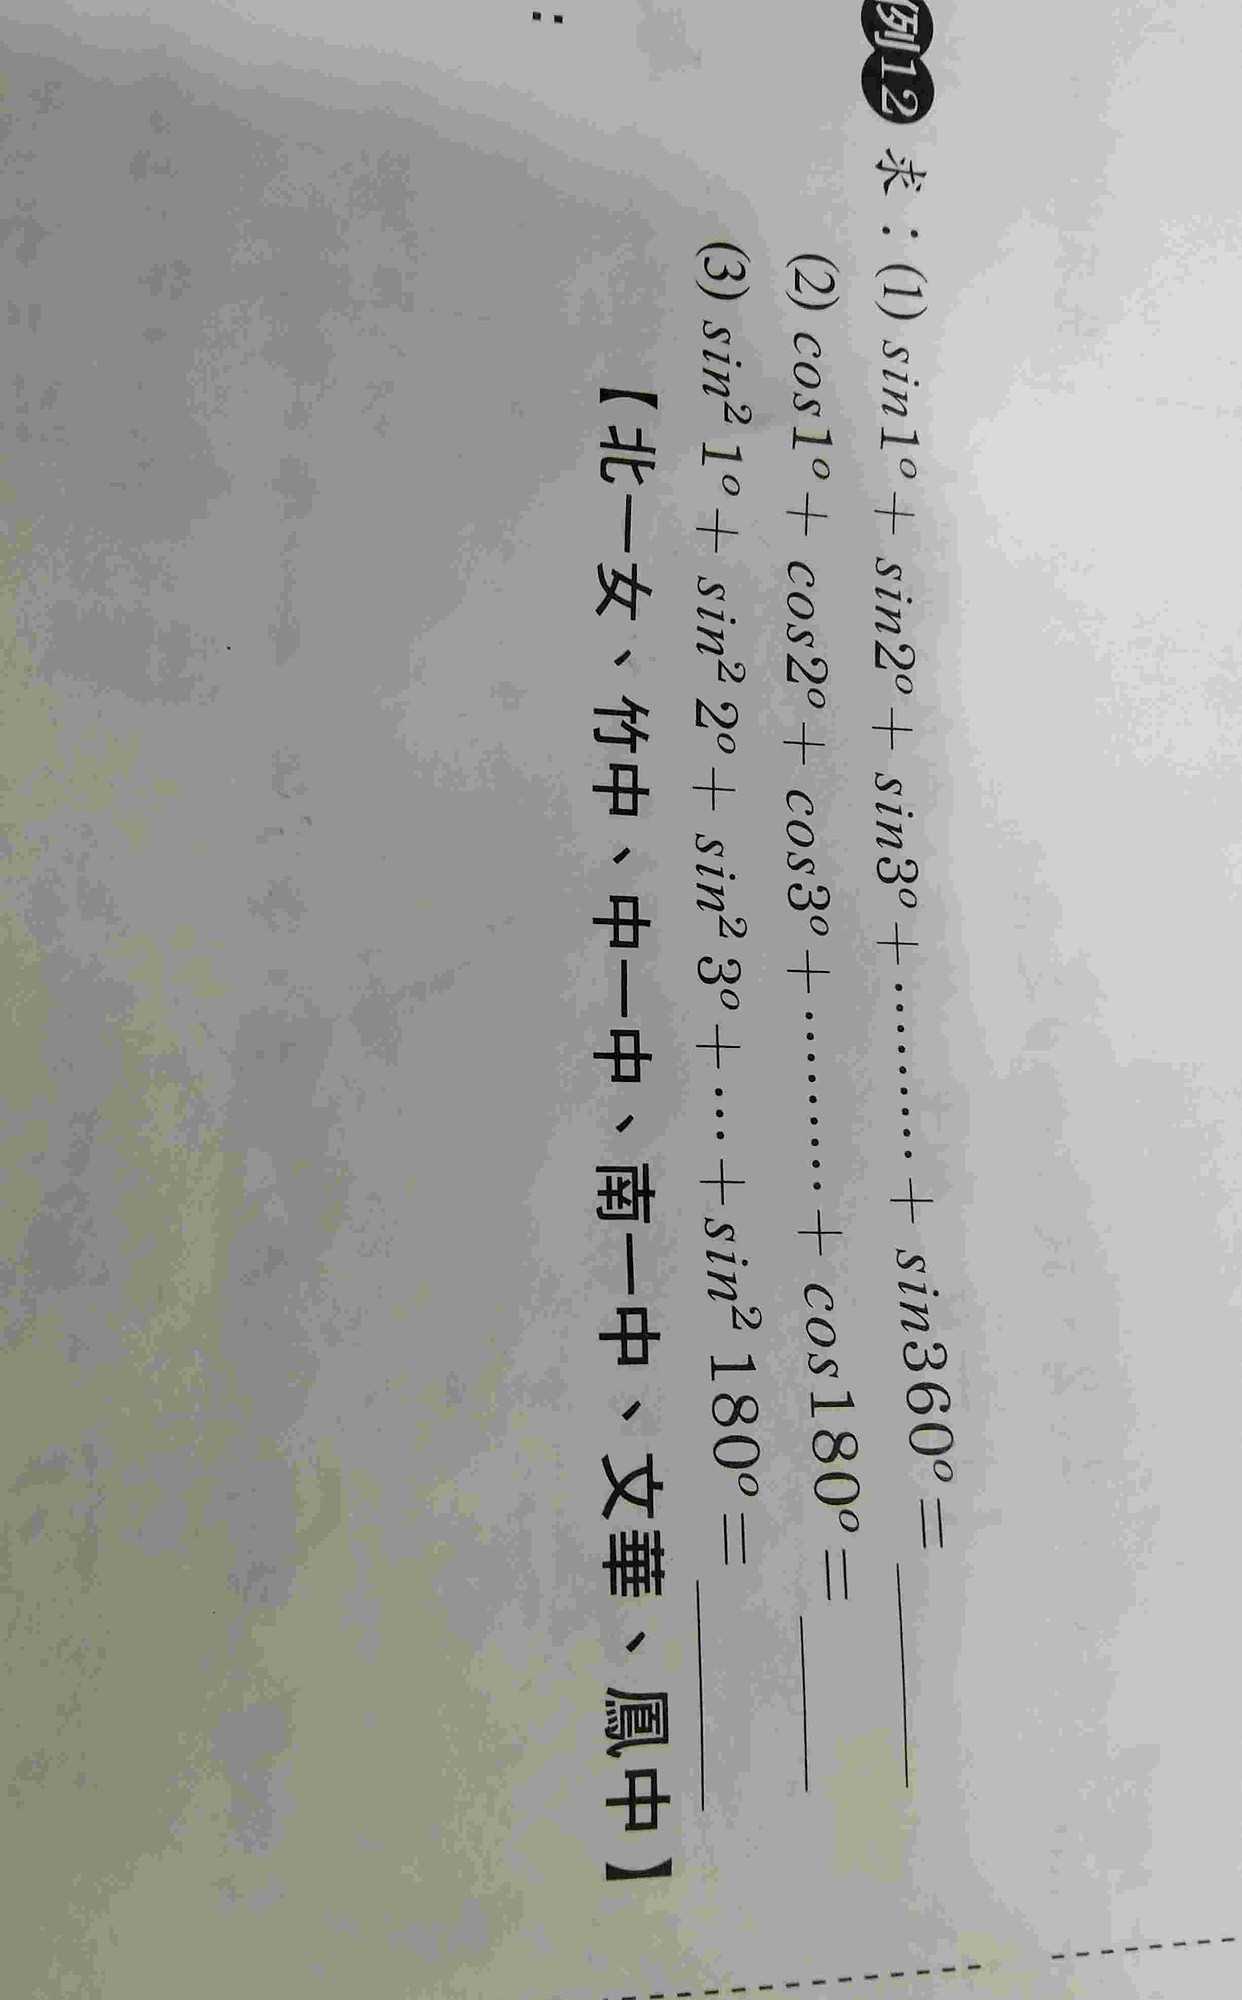 例12 求：(1) sin1° + sin2° + sin3° + ………… + sin360° = ______
(2) cos1° + cos2° + cos3° + ………… + cos180° = ______
(3) sin² 1° + sin² 2° + sin² 3° + … + sin² 180° = ______
【北一女、竹中、中一中、南一中、文華、鳳中】
: